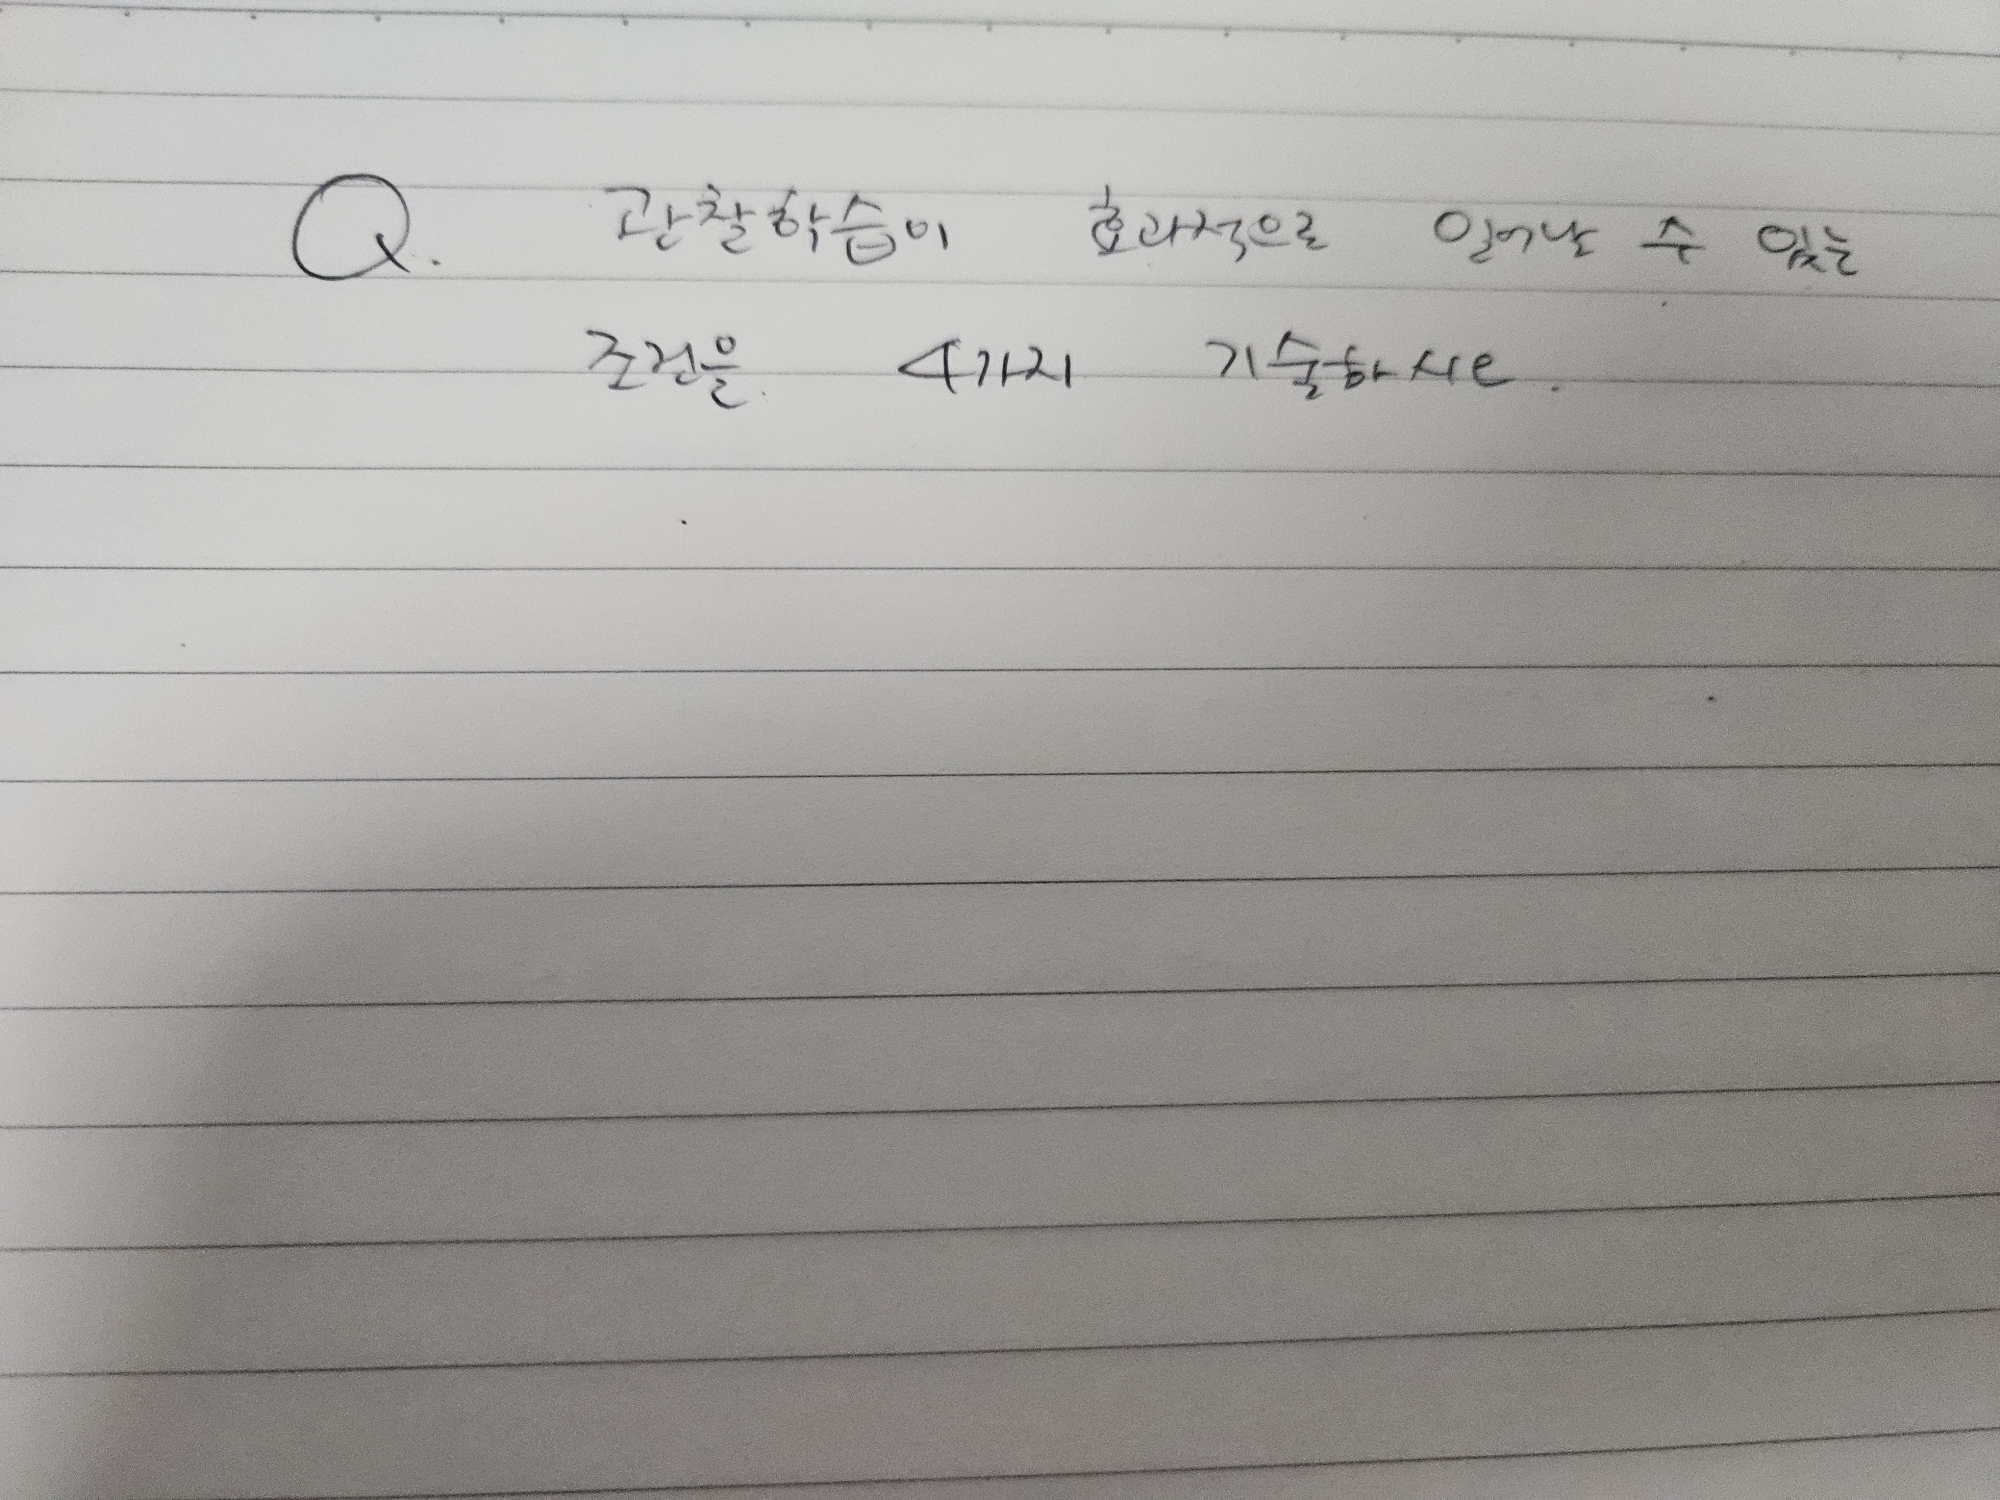 Q. 관찰학습이 효과적으로 일어날 수 있는
조건을 4가지 기술하시오.